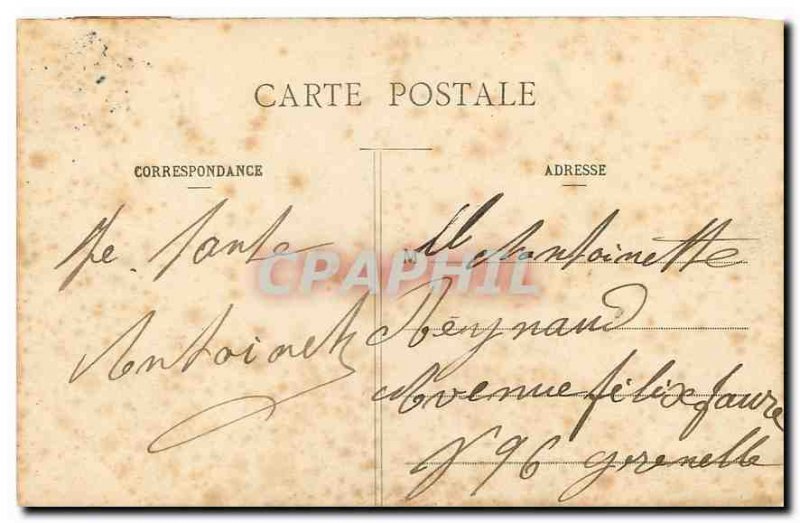 CARTE POSTALE
CORRESPONDANCE
ADRESSE
Antoinette
Mll Antoinette
Reynaud
Avenue félix faure
N 96 grenelle
CPAPHIL